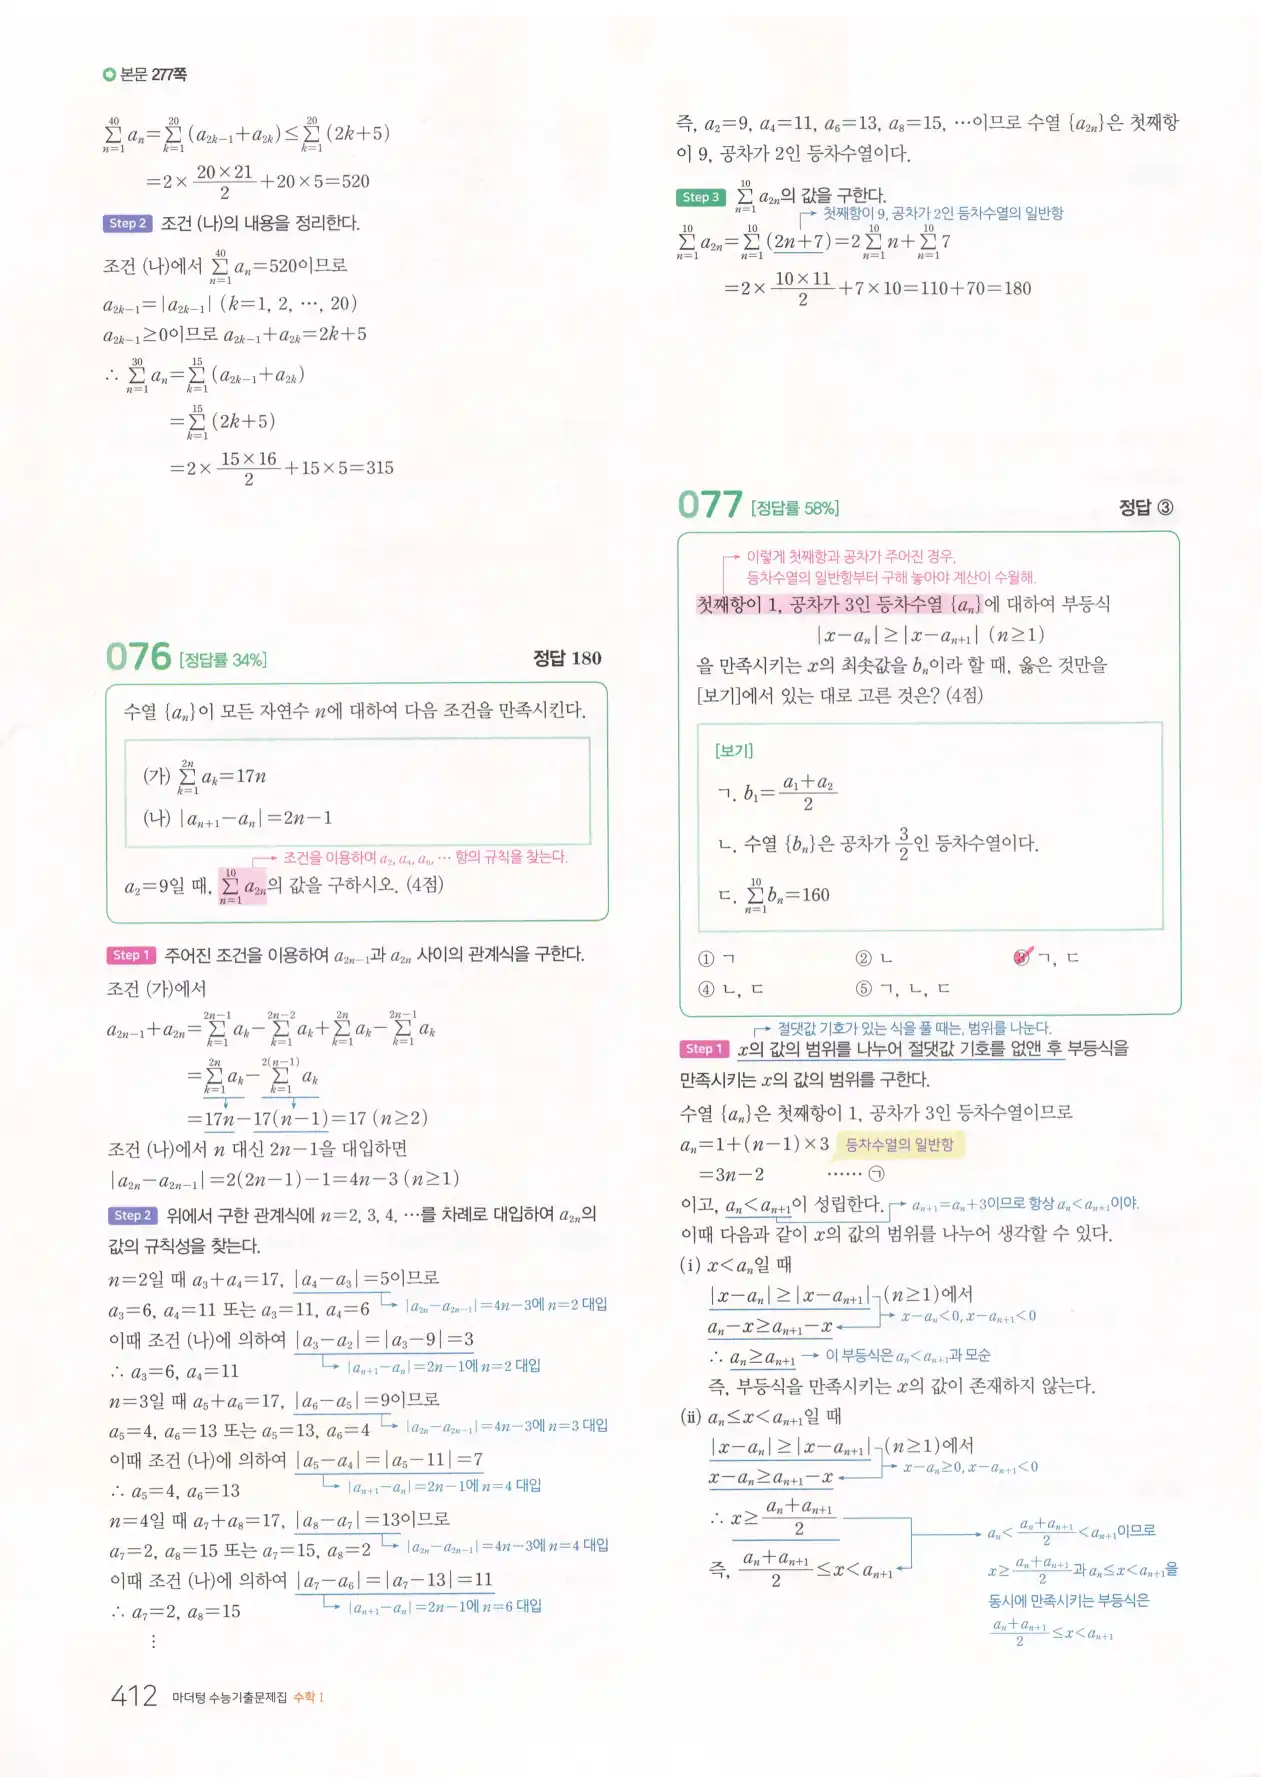 본문 277쪽
$\sum_{n=1}^{40} a_n=\sum_{k=1}^{20}(a_{2k-1}+a_{2k})\leq\sum_{k=1}^{20}(2k+5)$
$=2\times\frac{20\times21}{2}+20\times5=520$
Step 2 조건 (나)의 내용을 정리한다.
조건 (나)에서 $\sum_{n=1}^{40} a_n=520$이므로
$a_{2k-1}=|a_{2k-1}|$ (k=1, 2, …, 20)
$a_{2k-1}\geq0$이므로 $a_{2k-1}+a_{2k}=2k+5$
∴ $\sum_{n=1}^{30} a_n=\sum_{k=1}^{15}(a_{2k-1}+a_{2k})$
$=\sum_{k=1}^{15}(2k+5)$
$=2\times\frac{15\times16}{2}+15\times5=315$
076 [정답률 34%] 정답 180
수열 {$a_n$}이 모든 자연수 n에 대하여 다음 조건을 만족시킨다.
(가) $\sum_{k=1}^{2n} a_k=17n$
(나) $|a_{n+1}-a_n|=2n-1$
조건을 이용하여 $a_2, a_4, a_6, …$ 항의 규칙을 찾는다.
$a_2=9$일 때, $\sum_{n=1}^{10} a_{2n}$의 값을 구하시오. (4점)
Step 1 주어진 조건을 이용하여 $a_{2n-1}$과 $a_{2n}$ 사이의 관계식을 구한다.
조건 (가)에서
$a_{2n-1}+a_{2n}=\sum_{k=1}^{2n-1} a_k-\sum_{k=1}^{2n-2} a_k+\sum_{k=1}^{2n} a_k-\sum_{k=1}^{2n-1} a_k$
$=\sum_{k=1}^{2n} a_k-\sum_{k=1}^{2(n-1)} a_k$
$=17n-17(n-1)=17$ (n≥2)
조건 (나)에서 n 대신 2n-1을 대입하면
$|a_{2n}-a_{2n-1}|=2(2n-1)-1=4n-3$ (n≥1)
Step 2 위에서 구한 관계식에 n=2, 3, 4, …를 차례로 대입하여 $a_{2n}$의
값의 규칙성을 찾는다.
n=2일 때 $a_3+a_4=17$, $|a_4-a_3|=5$이므로
$a_3=6$, $a_4=11$ 또는 $a_3=11$, $a_4=6$ $|a_{2n}-a_{2n-1}|=4n-3$에 n=2 대입
이때 조건 (나)에 의하여 $|a_3-a_2|=|a_3-9|=3$
∴ $a_3=6$, $a_4=11$ $|a_{n+1}-a_n|=2n-1$에 n=2 대입
n=3일 때 $a_5+a_6=17$, $|a_6-a_5|=9$이므로
$a_5=4$, $a_6=13$ 또는 $a_5=13$, $a_6=4$ $|a_{2n}-a_{2n-1}|=4n-3$에 n=3 대입
이때 조건 (나)에 의하여 $|a_5-a_4|=|a_5-11|=7$
∴ $a_5=4$, $a_6=13$ $|a_{n+1}-a_n|=2n-1$에 n=4 대입
n=4일 때 $a_7+a_8=17$, $|a_8-a_7|=13$이므로
$a_7=2$, $a_8=15$ 또는 $a_7=15$, $a_8=2$ $|a_{2n}-a_{2n-1}|=4n-3$에 n=4 대입
이때 조건 (나)에 의하여 $|a_7-a_6|=|a_7-13|=11$
∴ $a_7=2$, $a_8=15$ $|a_{n+1}-a_n|=2n-1$에 n=6 대입
⋮
412 마더텅 수능기출문제집 수학 I
즉, $a_2=9$, $a_4=11$, $a_6=13$, $a_8=15$, …이므로 수열 {$a_{2n}$}은 첫째항
이 9, 공차가 2인 등차수열이다.
Step 3 $\sum_{n=1}^{10} a_{2n}$의 값을 구한다.
첫째항이 9, 공차가 2인 등차수열의 일반항
$\sum_{n=1}^{10} a_{2n}=\sum_{n=1}^{10}(2n+7)=2\sum_{n=1}^{10} n+\sum_{n=1}^{10} 7$
$=2\times\frac{10\times11}{2}+7\times10=110+70=180$
077 [정답률 58%] 정답 ③
이렇게 첫째항과 공차가 주어진 경우,
등차수열의 일반항부터 구해 놓아야 계산이 수월해.
첫째항이 1, 공차가 3인 등차수열 {$a_n$}에 대하여 부등식
$|x-a_n|\geq|x-a_{n+1}|$ (n≥1)
을 만족시키는 x의 최솟값을 $b_n$이라 할 때, 옳은 것만을
[보기]에서 있는 대로 고른 것은? (4점)
[보기]
ㄱ. $b_1=\frac{a_1+a_2}{2}$
ㄴ. 수열 {$b_n$}은 공차가 $\frac{3}{2}$인 등차수열이다.
ㄷ. $\sum_{n=1}^{10} b_n=160$
① ㄱ ② ㄴ ③ ㄱ, ㄷ
④ ㄴ, ㄷ ⑤ ㄱ, ㄴ, ㄷ
절댓값 기호가 있는 식을 풀 때는, 범위를 나눈다.
Step 1 x의 값의 범위를 나누어 절댓값 기호를 없앤 후 부등식을
만족시키는 x의 값의 범위를 구한다.
수열 {$a_n$}은 첫째항이 1, 공차가 3인 등차수열이므로
$a_n=1+(n-1)\times3$ 등차수열의 일반항
$=3n-2$ …… ㉠
이고, $a_n<a_{n+1}$이 성립한다. $a_{n+1}=a_n+3$이므로 항상 $a_n<a_{n+1}$이야.
이때 다음과 같이 x의 값의 범위를 나누어 생각할 수 있다.
(ⅰ) $x<a_n$일 때
$|x-a_n|\geq|x-a_{n+1}|$ (n≥1)에서
$a_n-x\geq a_{n+1}-x$ $x-a_n<0, x-a_{n+1}<0$
∴ $a_n\geq a_{n+1}$ → 이 부등식은 $a_n<a_{n+1}$과 모순
즉, 부등식을 만족시키는 x의 값이 존재하지 않는다.
(ⅱ) $a_n\leq x<a_{n+1}$일 때
$|x-a_n|\geq|x-a_{n+1}|$ (n≥1)에서
$x-a_n\geq a_{n+1}-x$ $x-a_n\geq0, x-a_{n+1}<0$
∴ $x\geq\frac{a_n+a_{n+1}}{2}$
즉, $\frac{a_n+a_{n+1}}{2}\leq x<a_{n+1}$
$a_n<\frac{a_n+a_{n+1}}{2}<a_{n+1}$이므로
$x\geq\frac{a_n+a_{n+1}}{2}$과 $a_n\leq x<a_{n+1}$을
동시에 만족시키는 부등식은
$\frac{a_n+a_{n+1}}{2}\leq x<a_{n+1}$